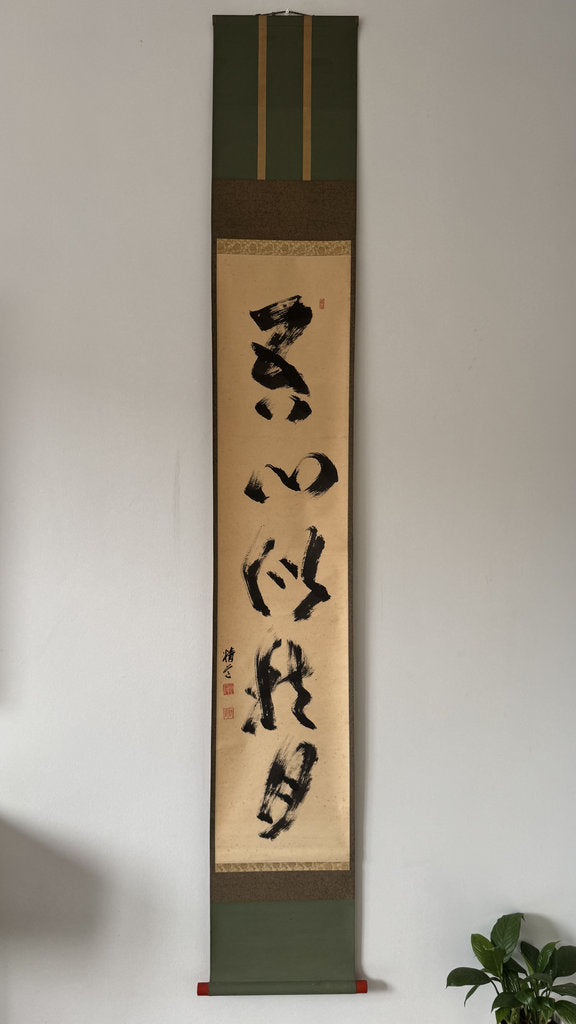 吾心似秋月